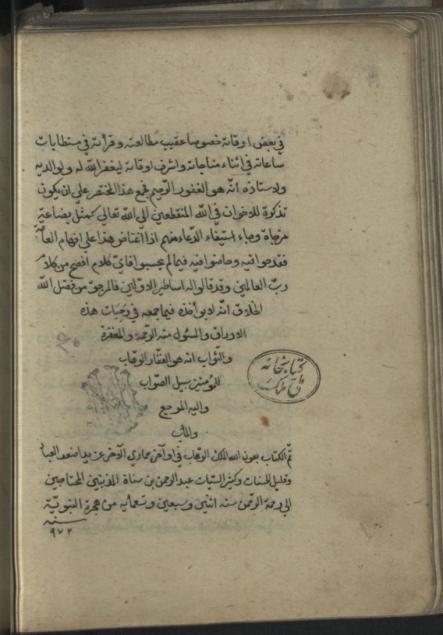 في بعض اوقاته خصوصا عقيب مطالعته وقرأته في مستطابات
ساعاته في اثناء مناجاته واشرف اوقاته ليغفر الله له ولوالديه
ولاستاذه انه هو الغفور الرحيم فجمع هذا المختصر على ان يكون
تذكرة للاخوان في الله المنقطعين الى الله تعالى كمثل بضاعة
مزجاة وجاء استيفاء الدعاء منهم اذا اعتاض هذا على افهام
فقد خاضوا فيه فيما لم يحسبوا فاي كلام افصح من كلام
رب العالمين وقد قالوا له اساطير الاولين فالمرجو من فضل الله
الخلاق انه لا يؤاخذه فيما جمعه في هذه
الاوراق والمسئول منه الرحمة والمغفرة
والثواب انه هو الغفار الوهاب
للمؤمنين سبيل الصواب
واليه المرجع
والمآب
تم الكتاب بعون الله الملك الوهاب في اواخر جمادي الآخر عن يد اضعف العباد
وقليل الحسنات وكثير السيئات عبد الرحمن بن المذنبين المحتاجين
الى رحمة الرحمن سنه اثنين وسبعين وتسعمايه من هجرة النبوية
سنه
٩٧٢
كتابخانه
ملك